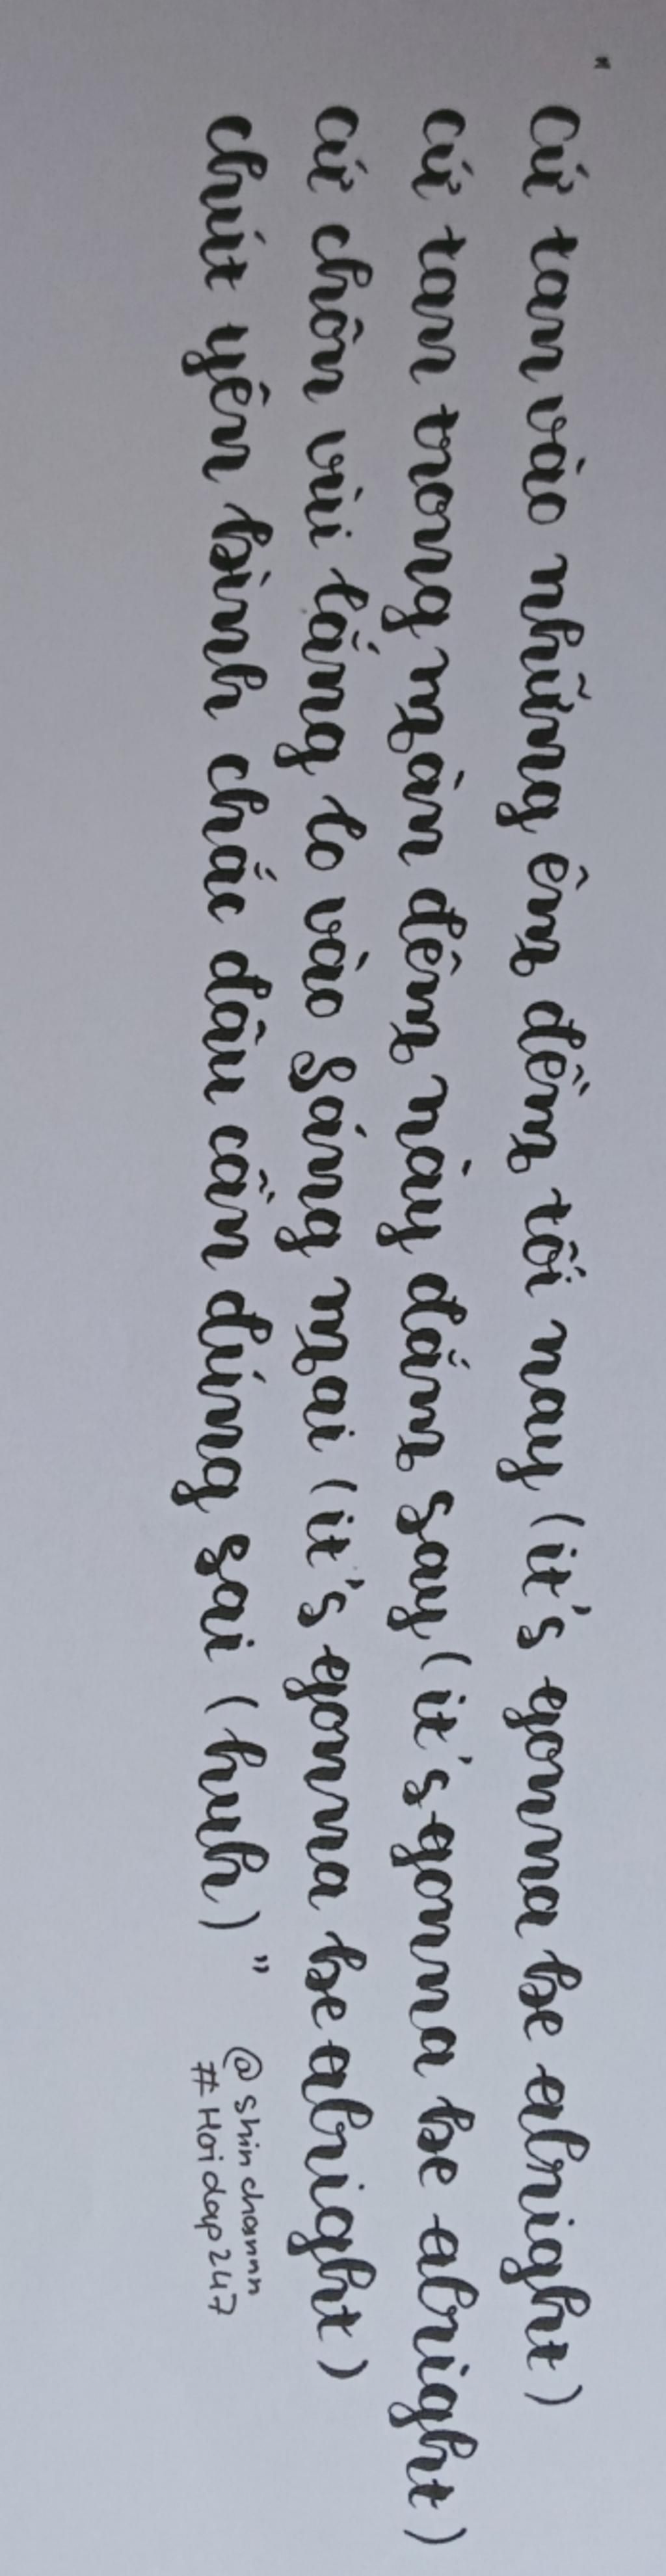 "
Cứ tan vào những êm đềm tối nay (it's gonna be alright)
cứ tan trong màn đêm này đắm say (it's gonna be alright)
cứ chôn vùi lắng lo vào sáng mai (it's gonna be alright)
chút yên bình chắc đâu cần đúng sai (huh) "
@shinchannn
#Hoidap247